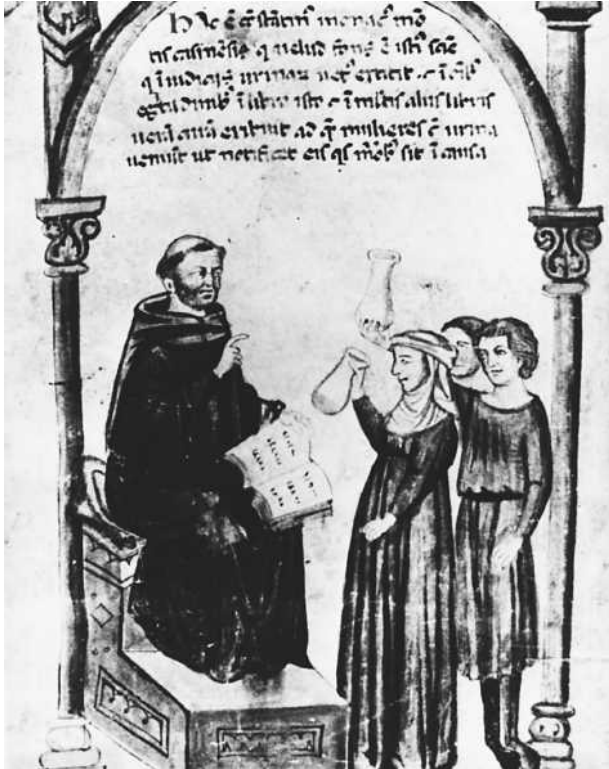 Hic ē cōstātin' monac' mō
tis casinēsis q uelud fons ē isti' scīe
q ī iudiciis urinaꝝ extitit ⁊ ī
egritudinib' ī libro isto ⁊ ī multis aliis libris
uerā curā exibuit ad quē mulieres cū urina
ueniūt ut notificet eis qs morb' sit ī causa